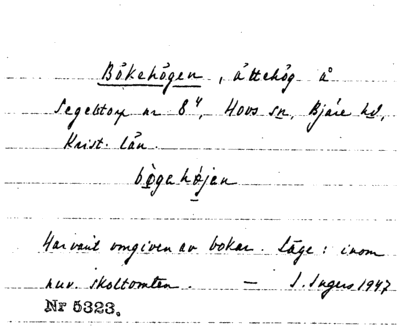 Bökehögen, ättehög å
Segeltorp nr 8⁴, Hovs sn, Bjäre hd,
Krist. län.
bögahöjen
Har varit omgiven av bokar. Läge: inom
nuv. skoltomten. — I. Ingers 1947
Nr 5323.